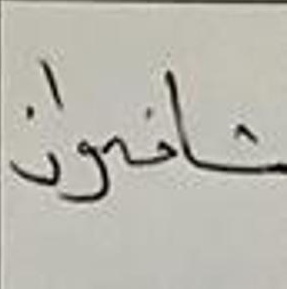 شاخوان